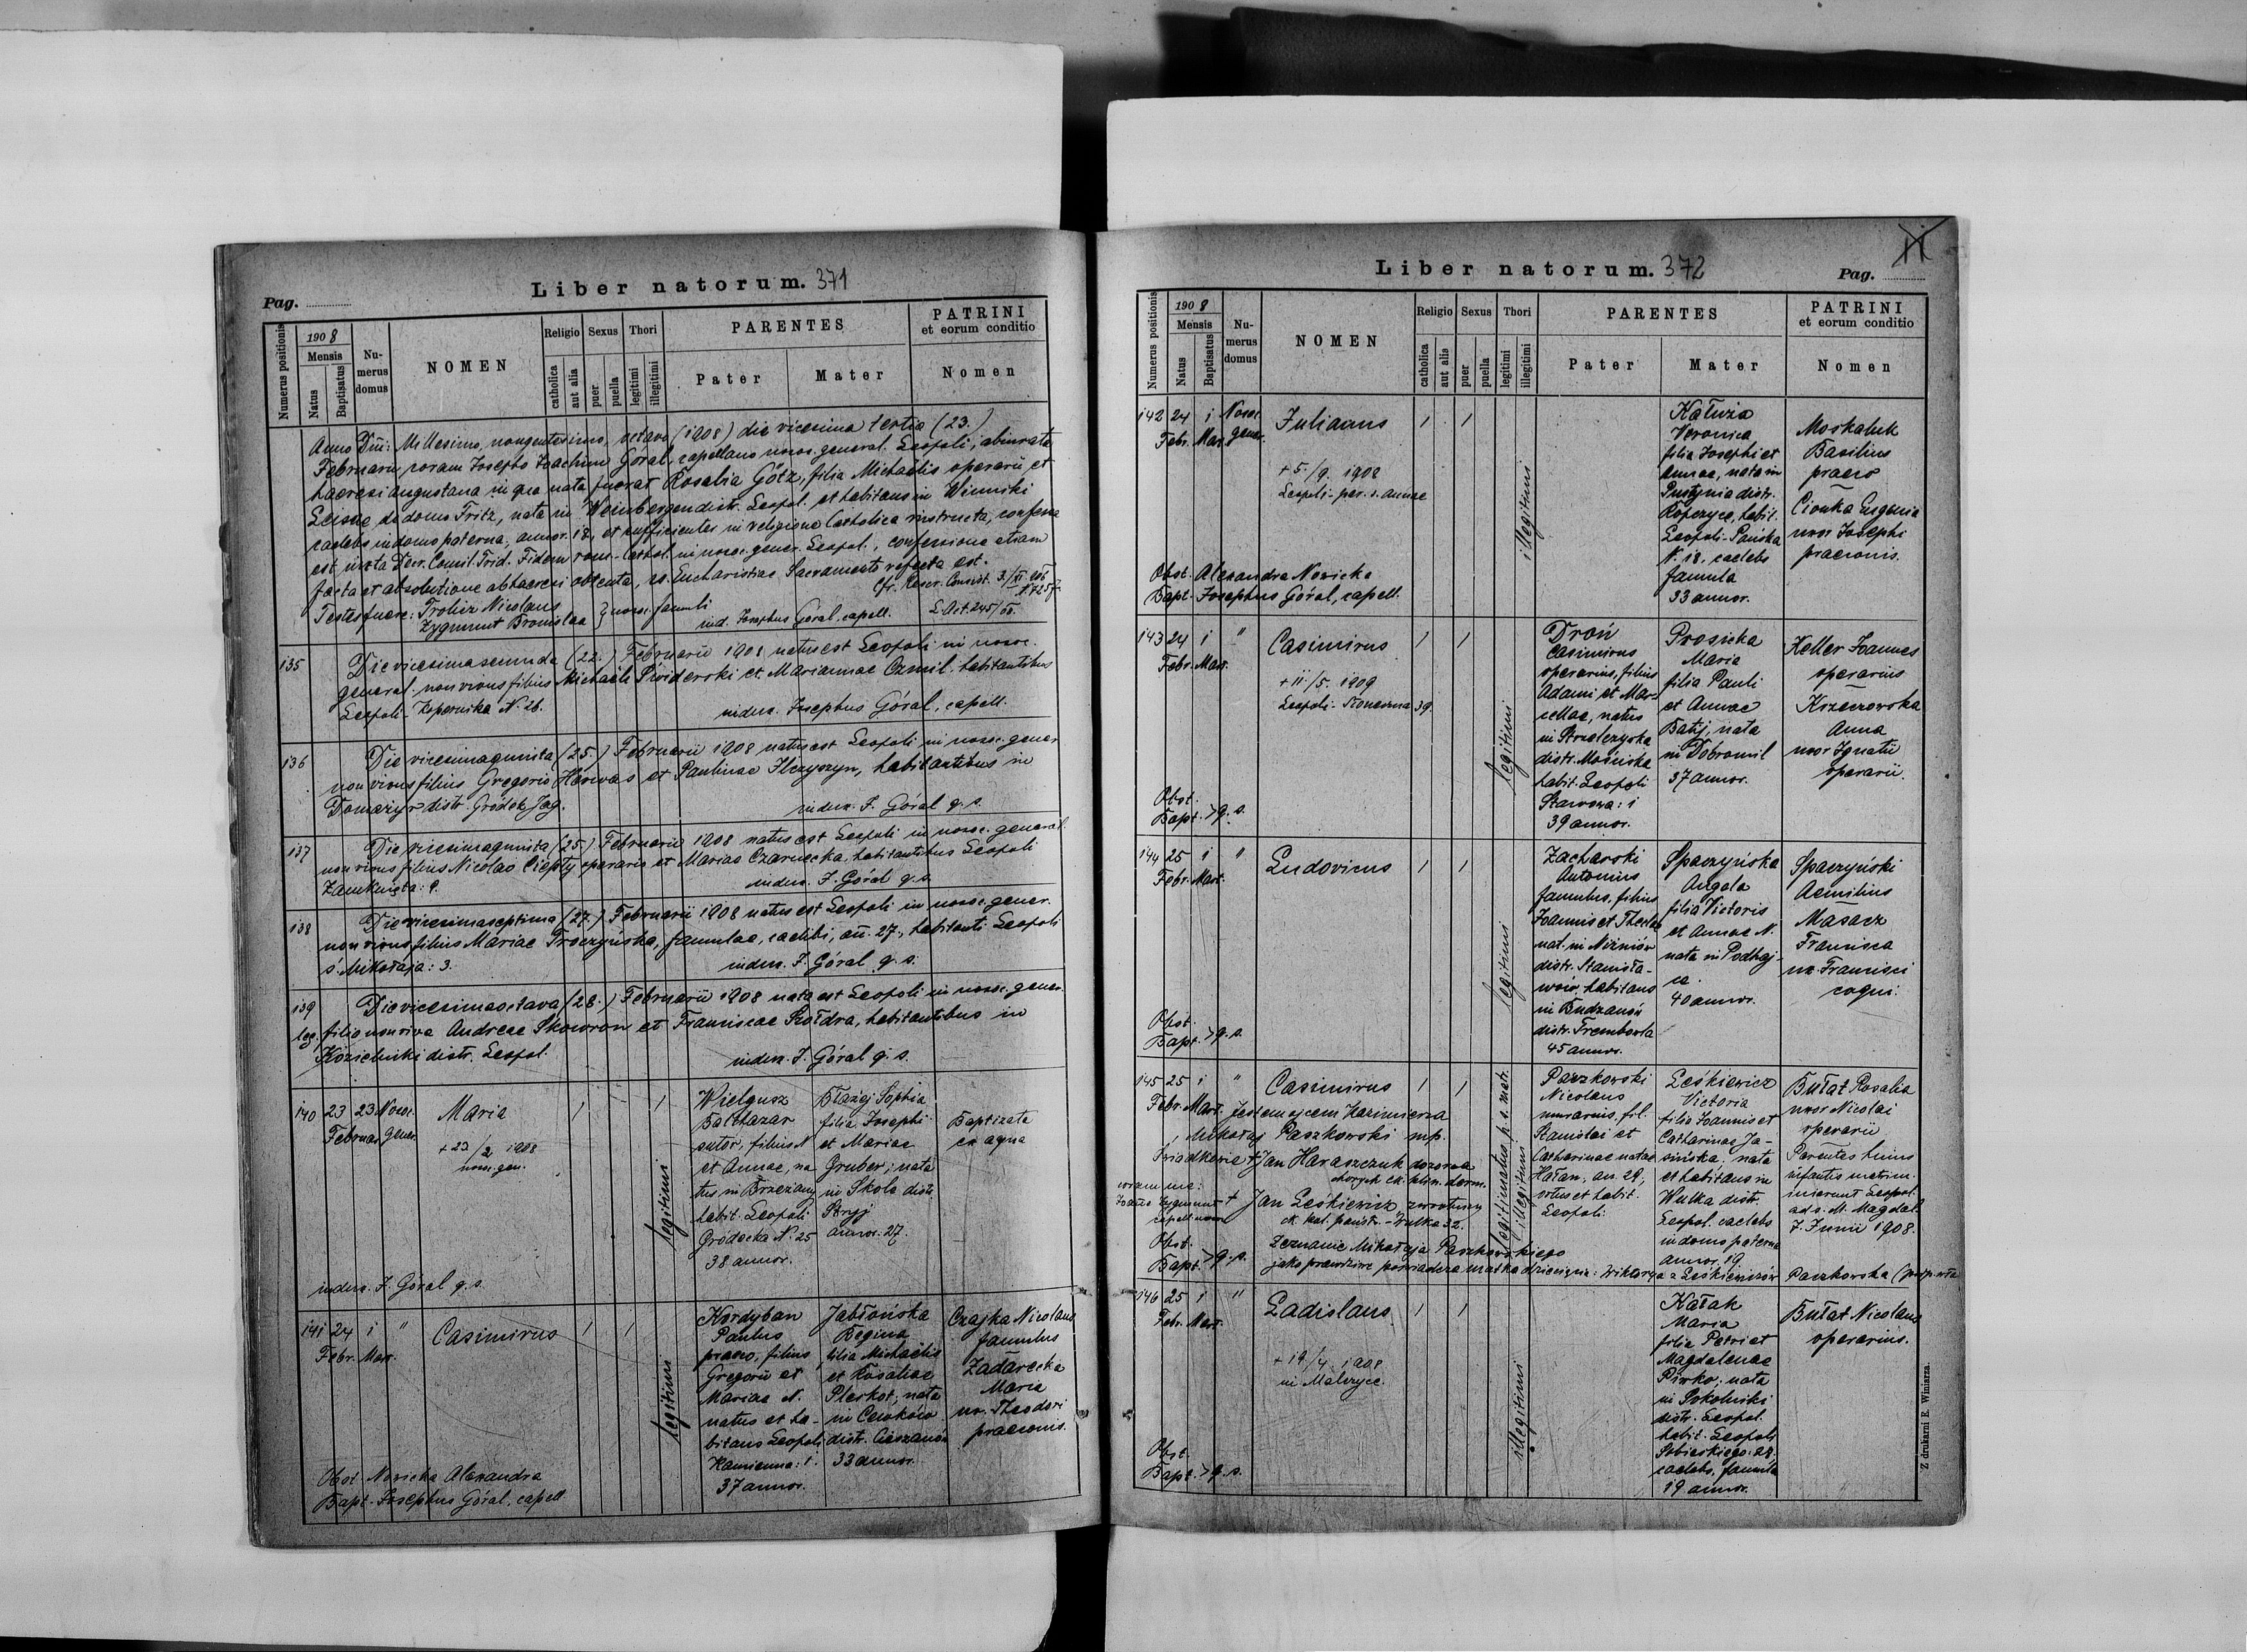 Liber natorum. 371
Pag.
Numerus positionis
1908
Mensis
Natus
Baptisatus
Nu-
merus
domus
NOMEN
Religio
catholica
aut alia
Sexus
puer
puella
Thori
legitimi
illegitimi
PARENTES
Pater
Mater
PATRINI
et eorum conditio
Nomen
Anno Dni: Millesimo, nongentesimo, octavo (1908) die vicesima tertia (23.)
Februarii coram Josepho Joachim Góral, capellano nosoc. general. Leopoli, abiurata
haeresi augustana in qua nata fuerat Rosalia Götz, filia Michaëlis operarii et
de domo Fritz, nata in Weinbergen distr. Leopol. et habitans in Winniki
caelebs in domo paterna, annor. 18, et sufficienter in religione Catholica instructa, confessa
est iuxta Decr. Concil. Trid. Fidem rom.-Cathol. in nosoc. gener. Leopol., confessione etiam
facta et absolutione ab haeresi obtenta, ss. Eucharistiae Sacramento refecta est.
Testes fuere: Nicolaus
Zygmunt Bronislaa } nosoc. famuli
ind. Josephus Góral, capell.
L. Act. 245/
135
Die vicesima secunda (22.) Februarii 1908 natus est Leopoli in nosoc.
general. non vivus filius Michaële Świderski et Mariannae habitantibus
Leopoli - Kopernika N. 26.
indux. Josephus Góral, capell.
136
Die vicesima quinta (25.) Februarii 1908 natus est Leopoli in nosoc. gener
non vivus filius Gregorio et Paulinae Ilczyszyn, habitantibus in
Domazyr distr. Gródek Jag.
indux. J. Góral q. s.
137
Die vicesima quinta (25.) Februarii 1908 natus est Leopoli in nosoc. general.
non vivus filius Nicolao Ciepły operario et Mariae Czarnecka, habitantibus Leopoli
Zamknięta: 9.
indux. J. Góral q. s.
138
Die vicesima septima (27.) Februarii 1908 natus est Leopoli in nosoc. gener.
non vivus filius Mariae Troczyńska, famulae, caelibi, an. 27., habitanti Leopoli
ś. Mikołaja: 3.
indux. J. Góral q. s.
139
Die vicesima octava (28.) Februarii 1908 nata est Leopoli in nosoc. gener.
leg. filia non viva Andreae Skowron et Franciscae Szołdra, habitantibus in
Kozielniki distr. Leopol.
indux. J. Góral q. s.
140
23 23 Nosoc.
Februar. gener.
Maria
+ 23/2 1908
nosoc. gen.
1
1
legitimi
Wielgusz
Balthazar
sutor, filius N
et Annae, na
tus in Brzeżany
habit. Leopoli
Gródecka N. 25
38 annor.
Błażej Sophia
filia Josephi
et Mariae
Gruber; nata
in Skole distr.
Stryj
annor. 27.
Baptizata
ex aqua
indux. J. Góral q. s.
141
24 1 "
Febr. Mart.
Casimirus
1
1
legitimi
Kordyban
Paulus
praeco, filius
Gregorii et
Mariae N.
natus et ha-
bitans Leopoli
Kamienna: 1.
37 annor.
Jabłońska
Regina
filia Michaëlis
et Rosaliae
Pleskot; nata
in Cewków
distr. Cieszanów
33 annor.
Czajka Nicolaus
famulus
Zadarecka
Maria
ux. Theodori
praeconis.
Obst. Nosicka Alexandra
Bapt. Josephus Góral, capell.
Liber natorum. 372
Pag.
Numerus positionis
1908
Mensis
Natus
Baptisatus
Nu-
merus
domus
NOMEN
Religio
catholica
aut alia
Sexus
puer
puella
Thori
legitimi
illegitimi
PARENTES
Pater
Mater
PATRINI
et eorum conditio
Nomen
142 24 1 Nosoc.
Febr. Mar. gener.
Julianus
1
1
+ 5./9. 1908
Leopoli - par. s. Annae
illegitimi
Kałuża
Veronica
filia Josephi et
Annae, nata in
Pustynia distr.
Ropczyce, habit.
Leopoli - Pańska
N. 18, caelebs
famula
33 annor.
Moskaluk
Basilius
praeco
Cionka Eugenia
uxor Josephi
praeconis.
Obst. Alexandra Nosicka
Bapt. Josephus Góral, capell.
143 24 1 "
Febr. Mart.
Casimirus
1
1
+ 11./5. 1909
Leopoli - Słoneczna 39.
legitimi
Droń
Casimirus
operarius, filius
Adami et Mar-
cellae, natus
in Strzelczyska
distr. Mościska
habit. Leopoli
Stawowa: 1
39 annor.
Prosicka
Maria
filia Pauli
et Annae
Batij, nata
in Dobromil
37 annor.
Keller Joannes
operarius
Krzeczowska
Anna
uxor Ignatii
operarii.
Obst.
Bapt. > q. s.
144 25 1 "
Febr. Mart.
Ludovicus
1
1
legitimi
Zacharski
Antonius
famulus, filius
Joannis et Theclae
nat. in Niżniów
distr. Stanisła-
wów, habitans
in Budzanów
distr. Trembowla
45 annor.
Spaczyńska
Angela
filia Victoris
et Annae N.
nata in Podhaj-
ce.
40 annor.
Spaczyński
Aemilius
Masacz
Francisca
ux. Francisci
coqui.
Obst.
Bapt. > q. s.
145 25 1 "
Febr. Mart.
Casimirus
1
1
Jestem ojcem Kazimierza
Mikołaj Paszkowski mp.
Świadkowie + Jan Haraszczuk dozorca
chorych ck. klin. derm.
coram me:
+ Jan Leśkiewicz zwrotniczy
ck. kol. państ. - Wulka 32.
Zeznanie Mikołaja Paszkowskiego
jako prawdziwe poświadcza matka dziecięcia: Wiktorya z Leśkiewiczów Paszkowska
legitimatus p. s. matr.
illegitimi
Paszkowski
Nicolaus
murarius, fil.
Stanislai et
Catharinae natae
Hałan, an. 29,
ortus et habit.
Leopoli.
Leśkiewicz
Victoria
filia Joannis et
Catharinae Ja-
sińska, nata
et habitans in
Wulka distr.
Leopol. caelebs
in domo paterna
annor. 19.
Bułat Rosalia
uxor Nicolai
operarii
Parentes huius
infantis matrim.
inierunt Leopol.
ad s. M. Magdal.
7. Junii 1908.
Obst.
Bapt. > q. s.
146 25 1 "
Febr. Mart.
Ladislaus
1
1
+ 19/4. 1908
in Malczyce.
illegitimi
Kałak
Maria
filia Petri et
Magdalenae
Pirko; nata
in Sokolniki
distr. Leopol.
habit. Leopoli
Sobieskiego: 22,
caelebs, famula
19 annor.
Bułat Nicolaus
operarius.
Obst.
Bapt. > q. s.
Z drukarni E. Winiarza.